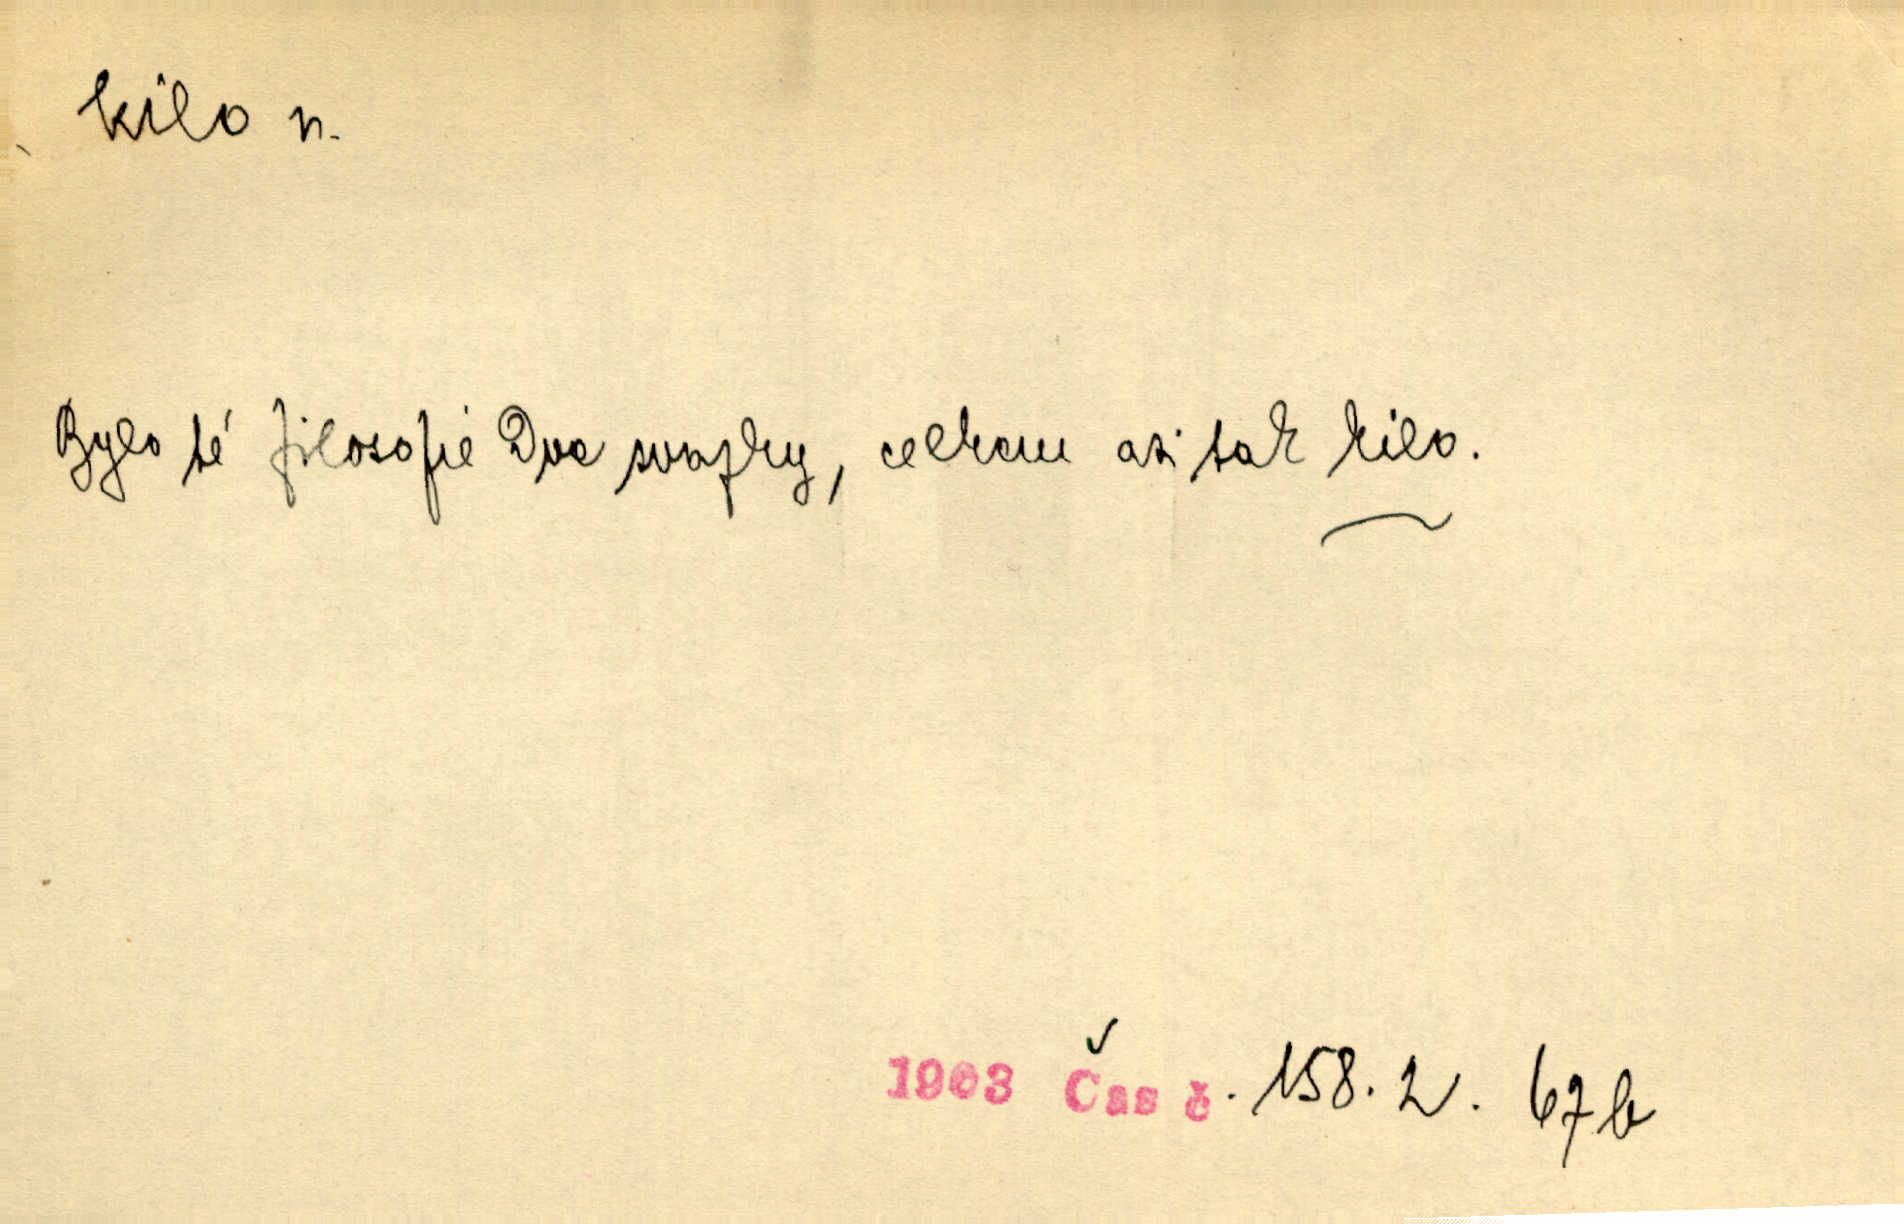 kilo n.
Bylo té filosofie Dva svazky, celkem asi tak kilo.
1903 Čas č. 158. 2. 67b